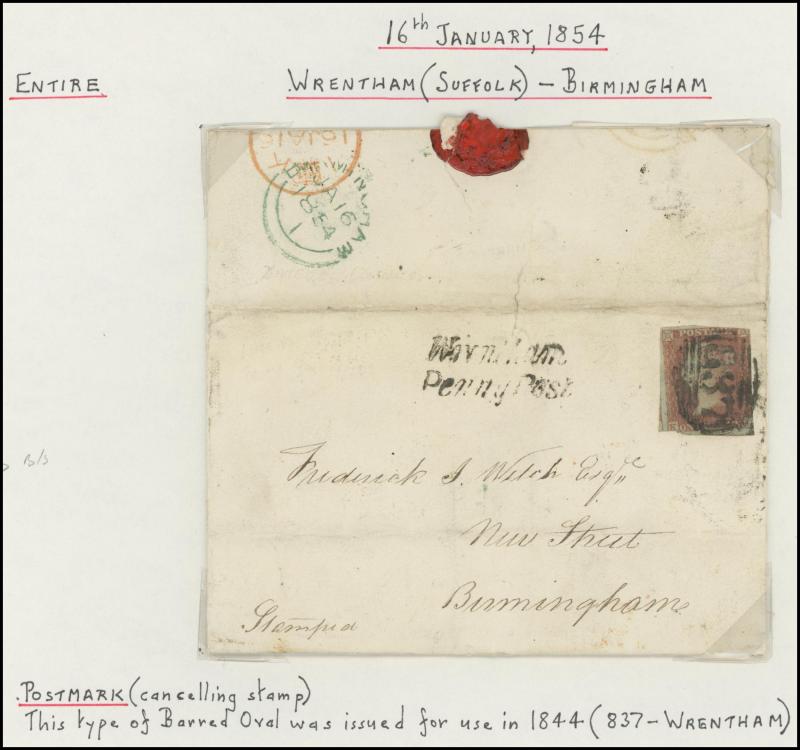 16th JANUARY, 1854
ENTIRE
WRENTHAM (SUFFOLK) - BIRMINGHAM
BIRMINGHAM
JA 16
1854
1
Penny Post
POSTAGE
Frederick S. Welch Esqr
New Street
Birmingham
Stamped
B/S
POSTMARK (cancelling stamp)
This type of Barred Oval was issued for use in 1844 (837 - WRENTHAM)